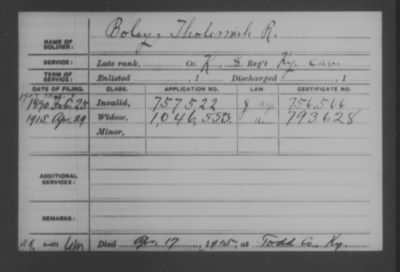 Boley, Tholemiah R.
NAME OF
SOLDIER:
SERVICE: Late rank, Co. K, 8 Reg't Ky. Cav.
TERM OF
SERVICE: Enlisted , 1 Discharged , 1
DATE OF FILING. CLASS. APPLICATION NO. LAW. CERTIFICATE NO.
1890 Feb. 25 Invalid, 757522 g 756,566
1915 Apr. 29 Widow, 1,046,553. 793628
Minor,
ADDITIONAL
SERVICES:
REMARKS:
Died Apr. 17, 1915, at Todd Co. Ky.